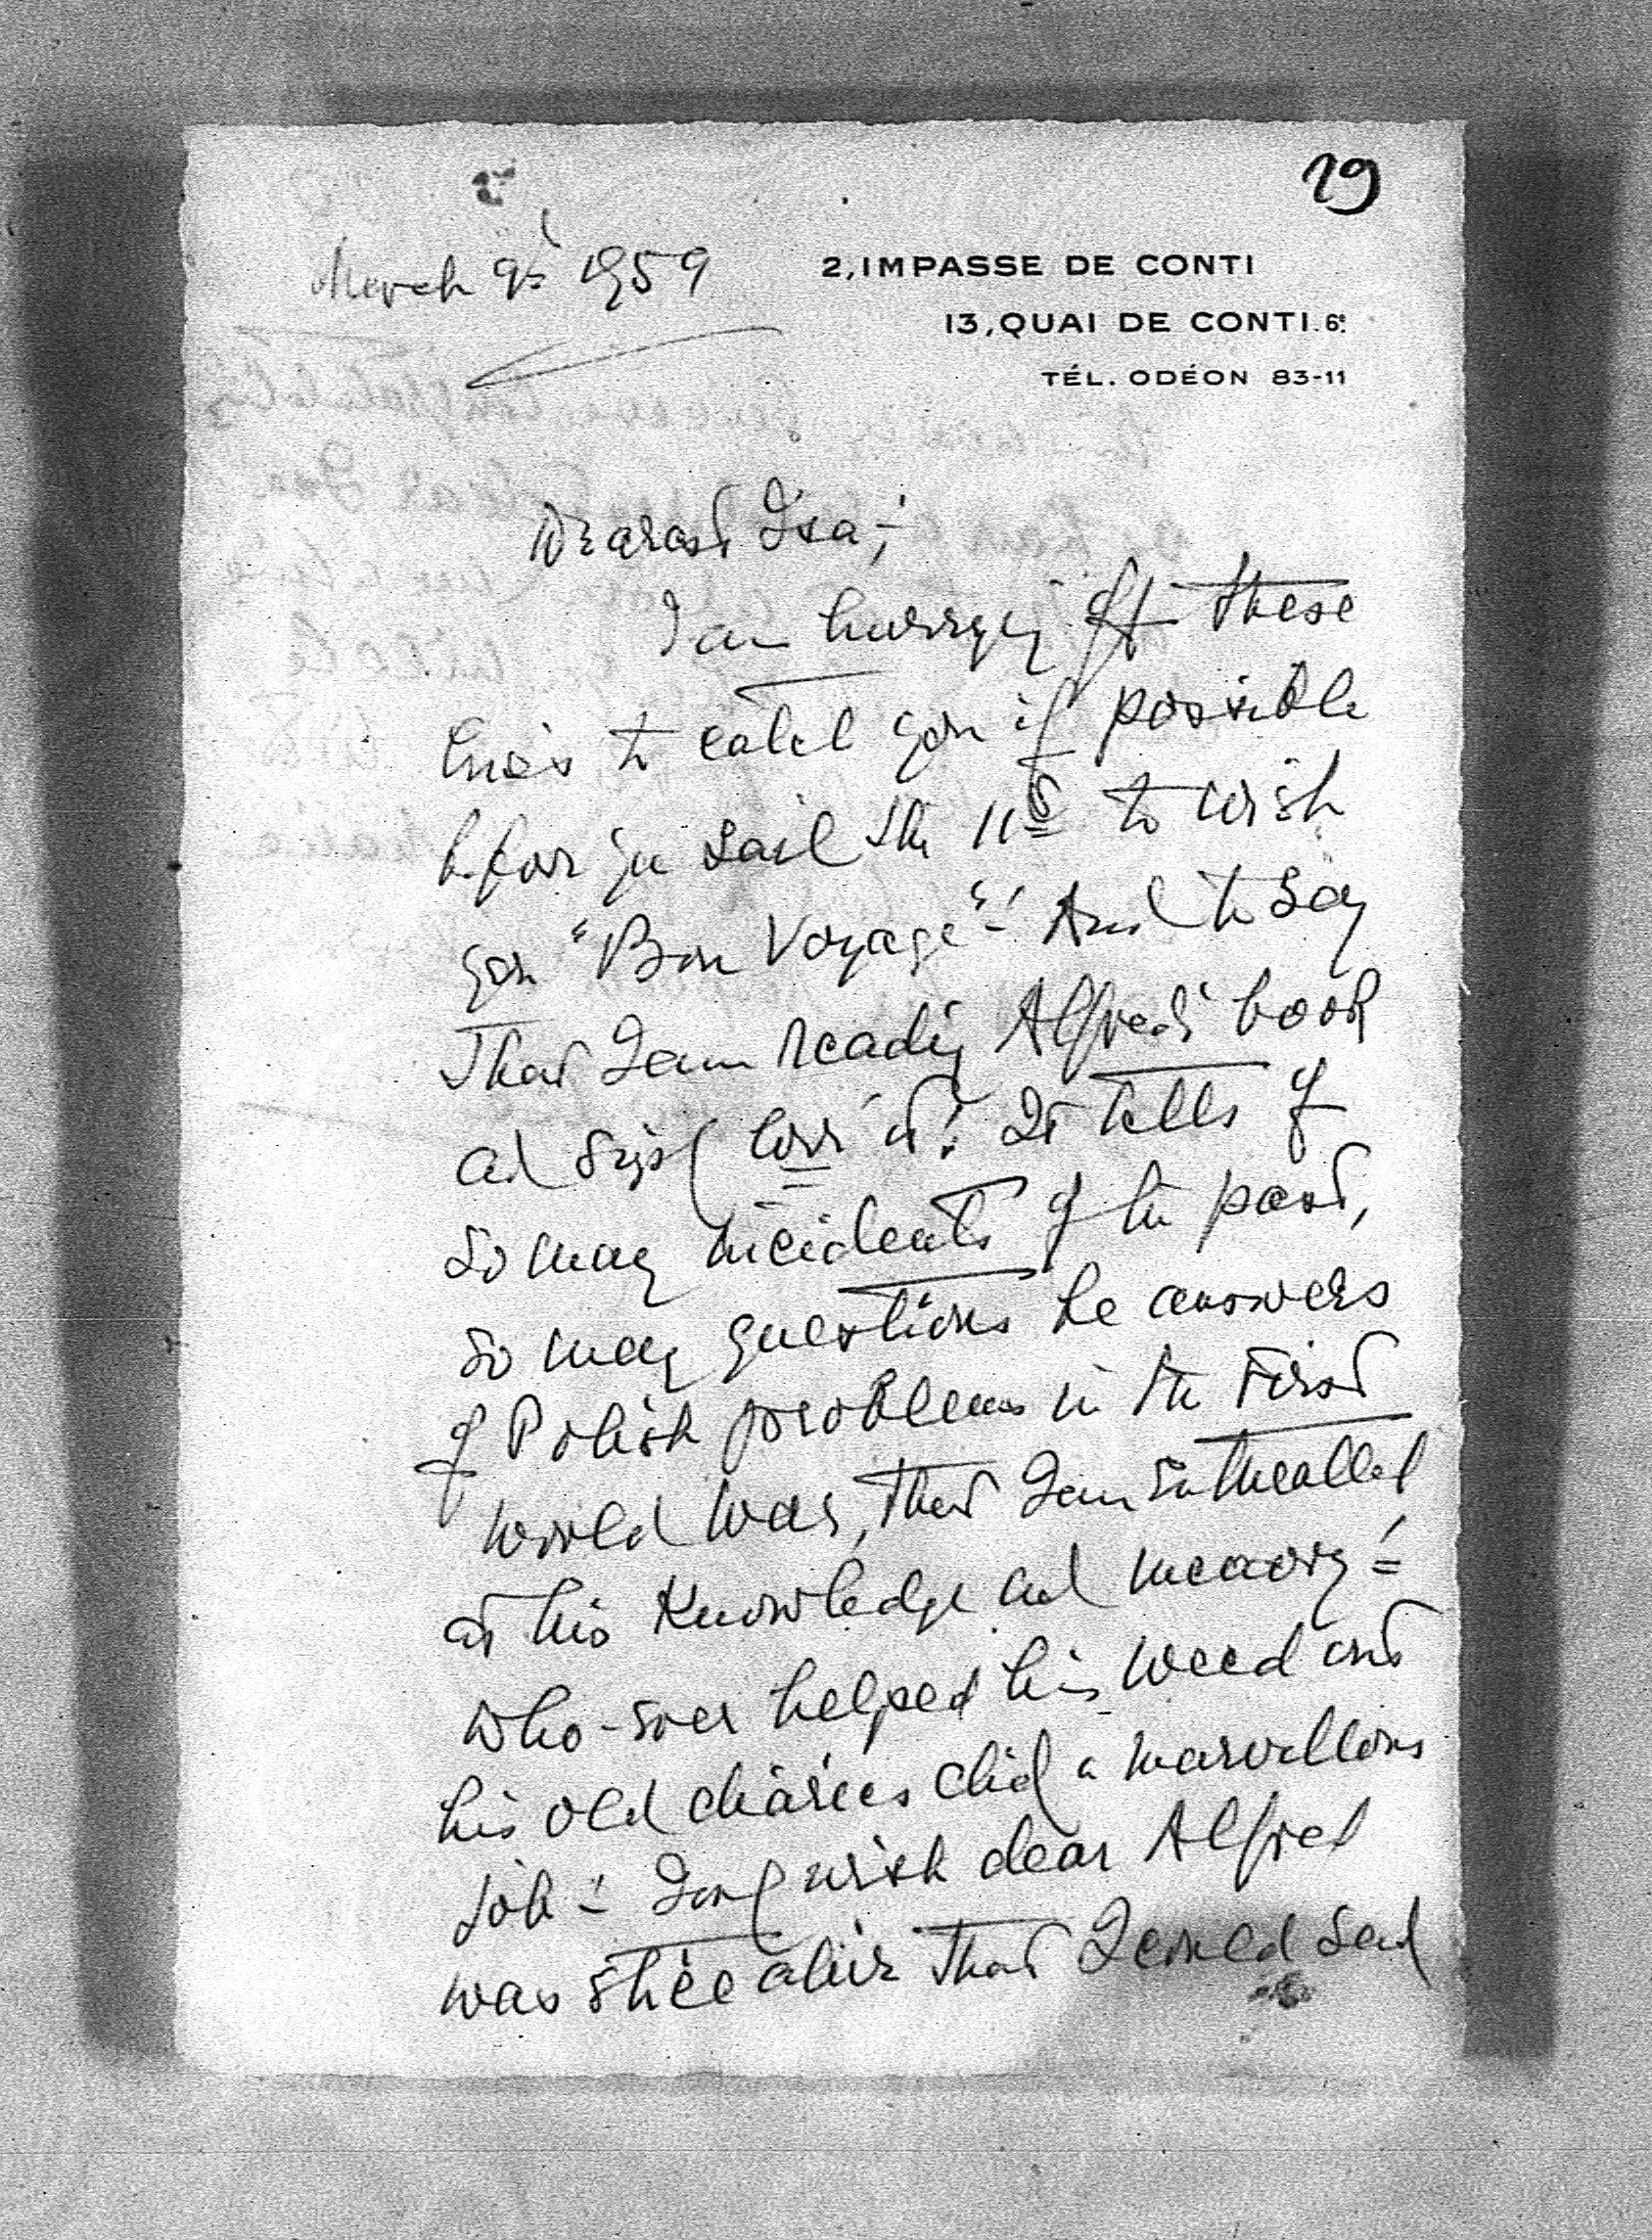 29
March 9th 1959
2, IMPASSE DE CONTI
13, QUAI DE CONTI. 6e.
TÉL. ODÉON 83-11
Dearest Isa;
I am hurrying off these
lines to catch you if possible
before you sail the 11th to wish
you "Bon Voyage"! And to say
That I am reading Alfred's book
and simply love it! It tells of
so many incidents of the past,
so many questions he answers
of Polish problems in the First
World War, that I am enthralled
at his Knowledge and memory!
Who-ever helped him weed out
his old diaries did a marvellous
job! I only wish dear Alfred
was still alive that I could send